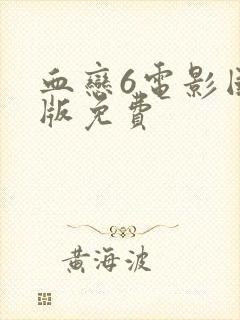 血戀6電影
版免費
黃海波